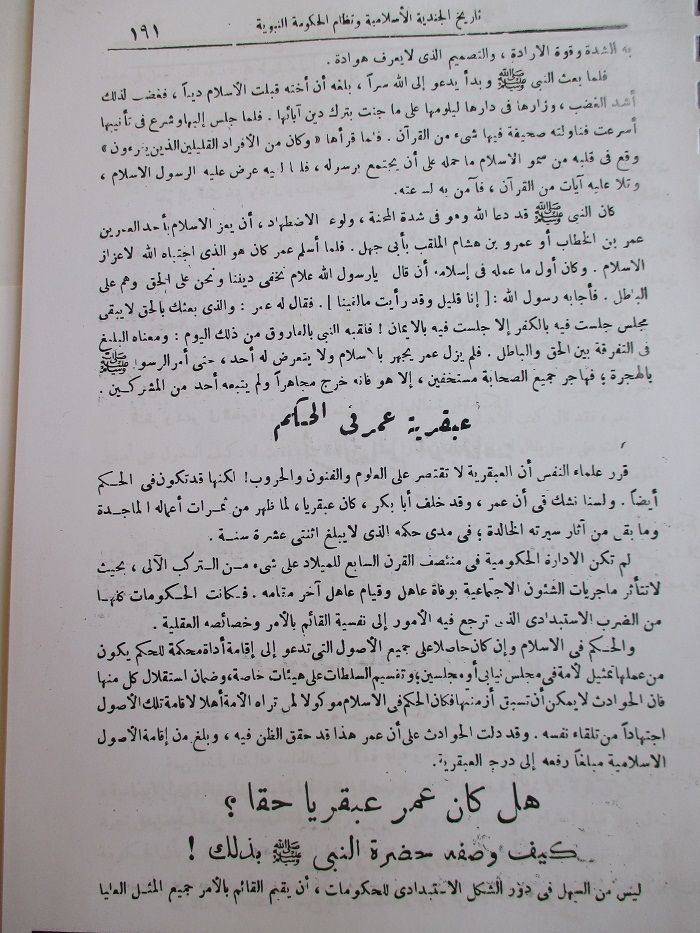 تاريخ الجندية الأسلامية ونظام الحكومة النبوية
١٩١
به الشدة وقوة الارادة ، والتصميم الذى لايعرف هوادة .
فلما بعث النبى ﷺ وبدأ يدعو إلى الله سراً ، بلغه أن أخته قبلت الأسلام ديناً ، فغضب لذلك
أشد الغضب ، وزارها فى دارها ليلومها على ما جنت بترك دين آبائها . فلما جلس إليها وشرع فى تأنيبها
أسرعت فناولته صحيفة فيها شىء من القرآن . فلما قرأها « وكان من الأفراد القليلين الذين يقرءون »
وقع فى قلبه من سمو الاسلام ما حمله على أن يجتمع برسوله ، فلما عرض عليه الرسول الاسلام ،
وتلا عليه آيات من القرآن ، فآمن به لساعته .
كان النبى ﷺ قد دعا الله وهو فى شدة المحنة ، الاضطهاد ، أن يعز الاسلام بأحد العمرين
عمر بن الخطاب أو عمرو بن هشام الملقب بأبى جهل . فلما أسلم عمر كان هو الذى اجتباه الله لاعزاز
الاسلام . وكان أول ما عمله فى إسلامه أن قال يارسول الله علام نخفى ديننا ونحن على الحق وهم على
الباطل . فأجابه رسول الله : [ إنا قليل وقد رأيت مالقينا ] . فقال له عمر : والذى بعثك بالحق لايبقى
مجلس جلست فيه بالكفر إلا جلست فيه بالايمان ! فلقبه النبى بالفاروق من ذلك اليوم : ومعناه البليغ
فى التفرقة بين الحق والباطل . فلم يزل عمر يجهر بالاسلام ولا يتعرض له أحد ، حتى أمر الرسول ﷺ
بالهجرة ؛ فهاجر جميع الصحابة مستخفين ، إلا هو فانه خرج مجاهراً ولم يتبعه أحد من المشركين .
عبقرية عمر فى الحكم
قرر علماء النفس أن العبقرية لا تقتصر على العلوم والفنون والحروب ! لكنها قد تكون فى الحكم
أيضاً . ولسنا نشك فى أن عمر ، وقد خلف أبا بكر ، كان عبقريا ، لما ظهر من ثمرات أعماله الماجدة
وما بقى من آثار سيرته الخالدة ؛ فى مدى حكمه الذى لايبلغ اثنتى عشرة سنة .
لم تكن الادارة الحكومية فى منتصف القرن السابع للميلاد على شىء من التركب الآلى ، بحيث
لاتتأثر ماجريات الشئون الاجتماعية بوفاة عاهل وقيام عاهل آخر مقامه . فكانت الحكومات كلها
من الضرب الاستبدادى الذى ترجع فيه الأمور إلى نفسية القائم بالأمر وخصائصه العقلية .
والحكم فى الاسلام وإن كان حاصلا على جميع الأصول التى تدعو إلى إقامة أداة محكمة للحكم يكون
من عملها تمثيل الأمة فى مجلس نيابى أو مجلسين ؛ وتقسيم السلطات على هيئات خاصة ، وضمان استقلال كل منها
فان الحوادث لايمكن أن تسبق أزمنتها فكان الحكم فى الاسلام موكولا لمن تراه الأمة أهلا لاقامة تلك الأصول
اجتهاداً من تلقاء نفسه . وقد دلت الحوادث على أن عمر هذا قد حقق الظن فيه ، وبلغ من إقامة الأصول
الاسلامية مبلغاً رفعه إلى درجة العبقرية .
هل كان عمر عبقريا حقا ؟
كيف وصفه حضرة النبى ﷺ بذلك !
ليس من السهل فى دور الشكل الاستبدادى للحكومات ، أن يقيم القائم بالأمر جميع المثل العليا